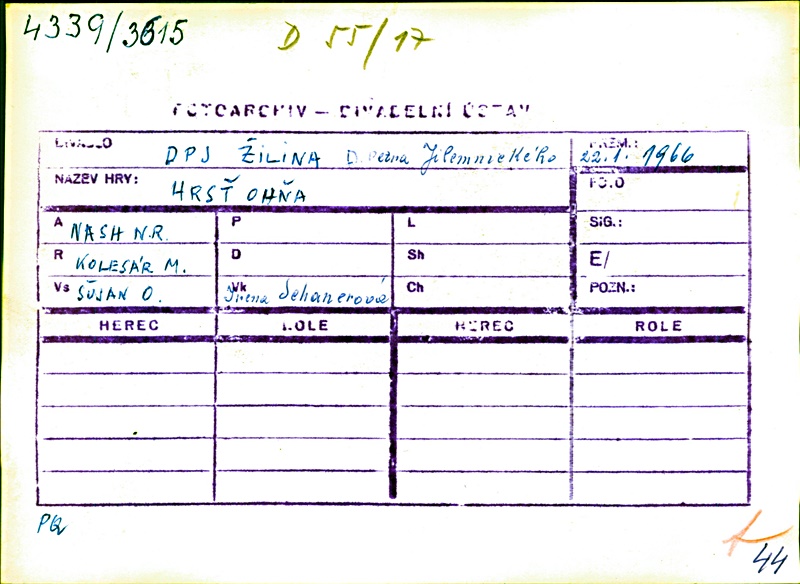 4339/3615 D 55/17
FOTOARCHIV – DIVADELNÍ ÚSTAV
DIVADLO DPJ ŽILINA D. Petra Jilemnického PREM.: 22.1. 1966
NÁZEV HRY: HRSŤ OHŇA FO.O
A NASH N.R. P L SIG.:
R KOLESÁR M. D Sh E/
Vs ŠUJAN O. Vk Irena Schanerová Ch POZN.:
HEREC ROLE HEREC ROLE
PQ
44